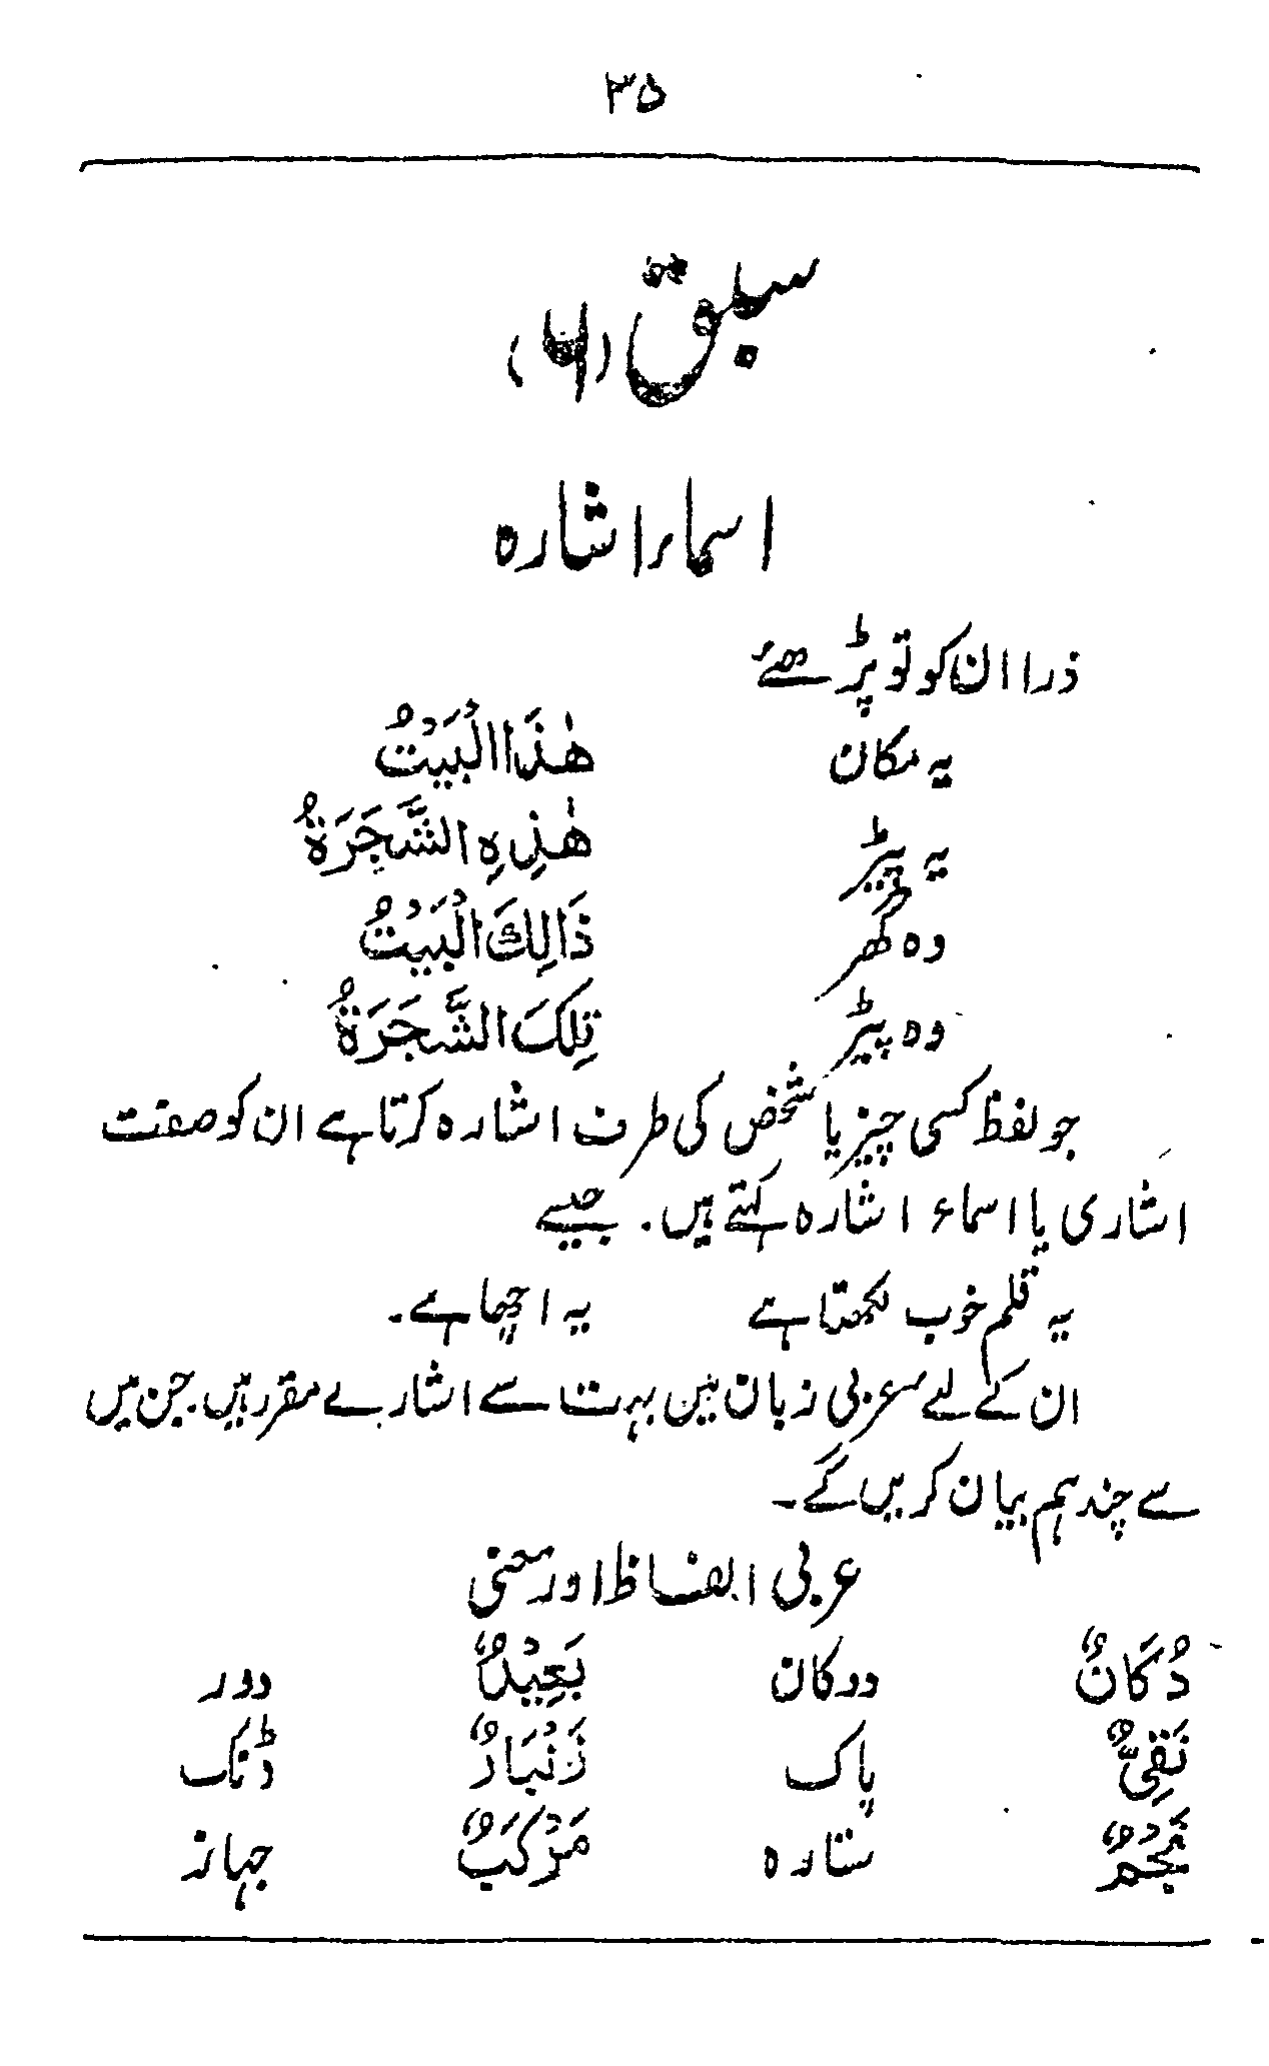 ۳۵
سبق
اسماء اشارہ
ذرا ان کو تو پڑھئے
یہ مکان هٰذَا الْبَيْتُ
یہ پیڑ هٰذِهِ الشَّجَرَةُ
وہ گھر ذَالِكَ الْبَيْتُ
وہ پیڑ تِلكَ الشَّجَرَةُ
جو لفظ کسی چیز یا شخص کی طرف اشارہ کرتا ہے ان کو صفت
اشاری یا اسماء اشارہ کہتے ہیں۔ جیسے
یہ قلم خوب لکھتا ہے یہ اچھا ہے۔
ان کے لئے عربی زبان میں بہت سے اشارے مقرر ہیں۔ جن میں
سے چند ہم بیان کریں گے۔
عربی الفاظ اور معنی
دُكَانٌ دوکان بَعِيْدٌ دور
نَقِيٌّ پاک زَنْبَارٌ ڈنک
نَجْمٌ ستارہ مَرْكَبٌ جہاز